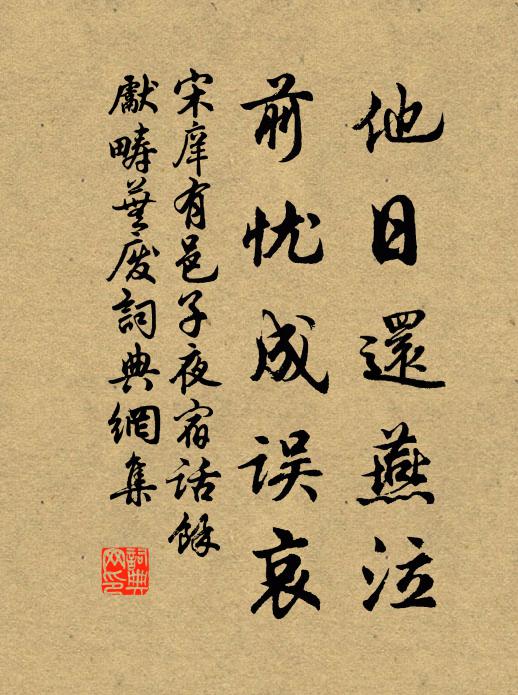 他日還燕泣
前忧成误哀
宋庠有邑子夜宿话餘
獻疇蕪廢詞典網集
詞典网印